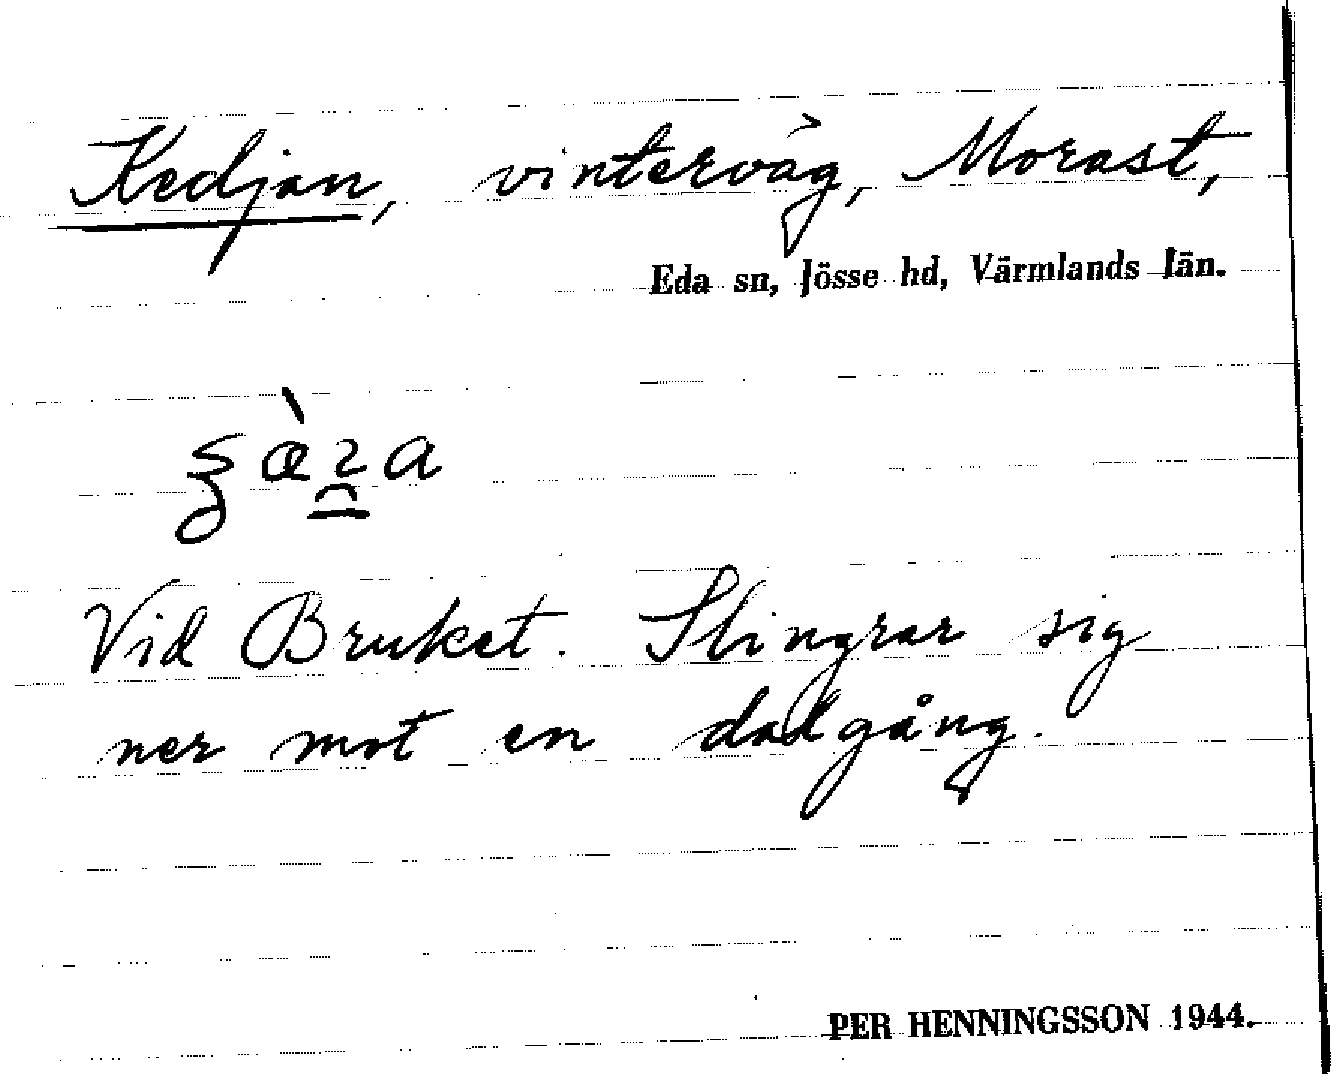 Kedjan, vinterväg, Morast,
Eda sn, Jösse hd, Värmlands län.
Vid Bruket. Slingrar sig
ner mot en dalgång.
PER HENNINGSSON 1944.